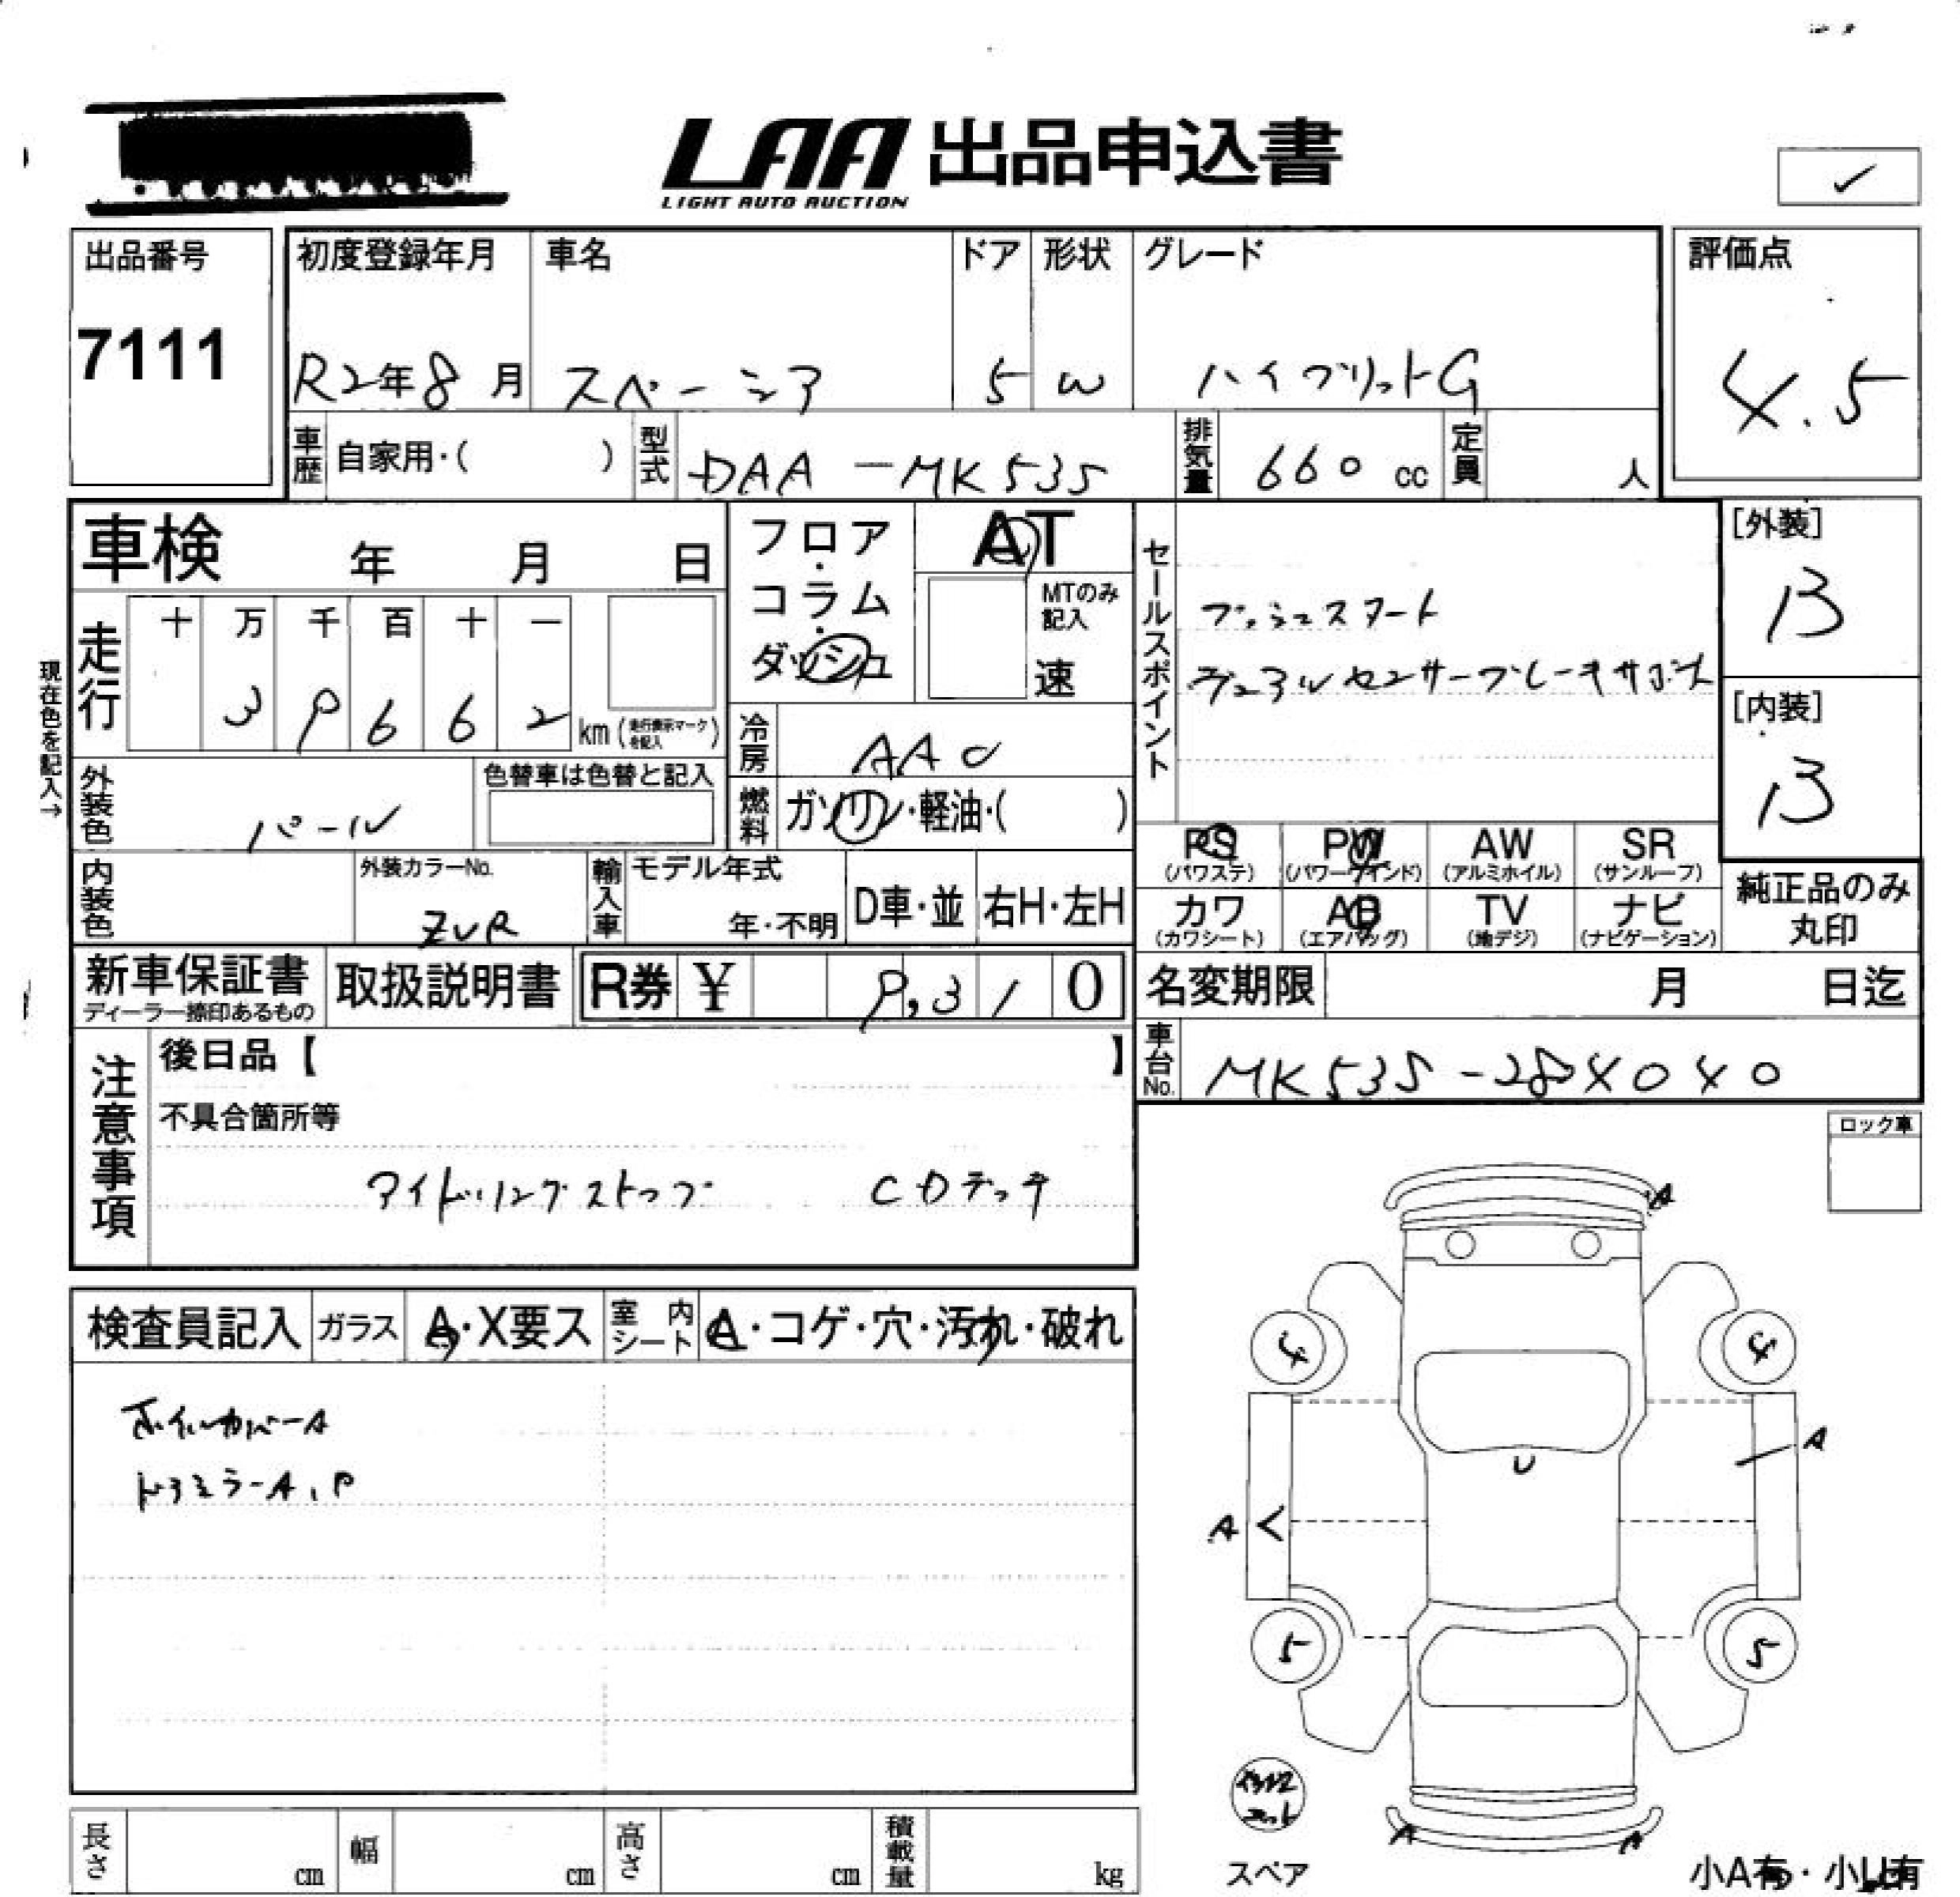 LAA 出品申込書
LIGHT AUTO AUCTION
✓
出品番号
7111
初度登録年月 車名 ドア 形状 グレード
R2年8月 スペーシア 5 W ハイブリットG
評価点
4.5
車歴 自家用・( ) 型式 DAA-MK53S 排気量 660cc 定員 人
車検 年 月 日
フロア・コラム・ダッシュ
AT
MTのみ記入
速
走行 十 万 千 百 十 一
3 9 6 6 2 km(走行表示マークを記入)
現在色を記入→
外装色 パール
色替車は色替と記入
冷房 AAC
燃料 ガソリン・軽油・( )
内装色
外装カラーNo.
ZVR
輸入車 モデル年式 年・不明 D車・並 右H・左H
セールスポイント
プッシュスタート
デュアルセンサーブレーキサポート
[外装]
B
[内装]
B
PS (パワステ) PW (パワーウインド) AW (アルミホイル) SR (サンルーフ)
カワ (カワシート) AB (エアバッグ) TV (地デジ) ナビ (ナビゲーション)
純正品のみ丸印
新車保証書 ディーラー捺印あるもの
取扱説明書
R券 ¥ 9,310
名変期限 月 日迄
車台No. MK53S-284040
注意事項
後日品【 】
不具合箇所等
アイドリングストップ CDデッキ
ロック車
検査員記入 ガラス A・X要ス 室内シート A・コゲ・穴・汚れ・破れ
ホイルカバーA
ドアミラーA,P
A
4 4
A
U
A
5 5
A A
スペア
小A有・小U有
長さ cm 幅 cm 高さ cm 積載量 kg